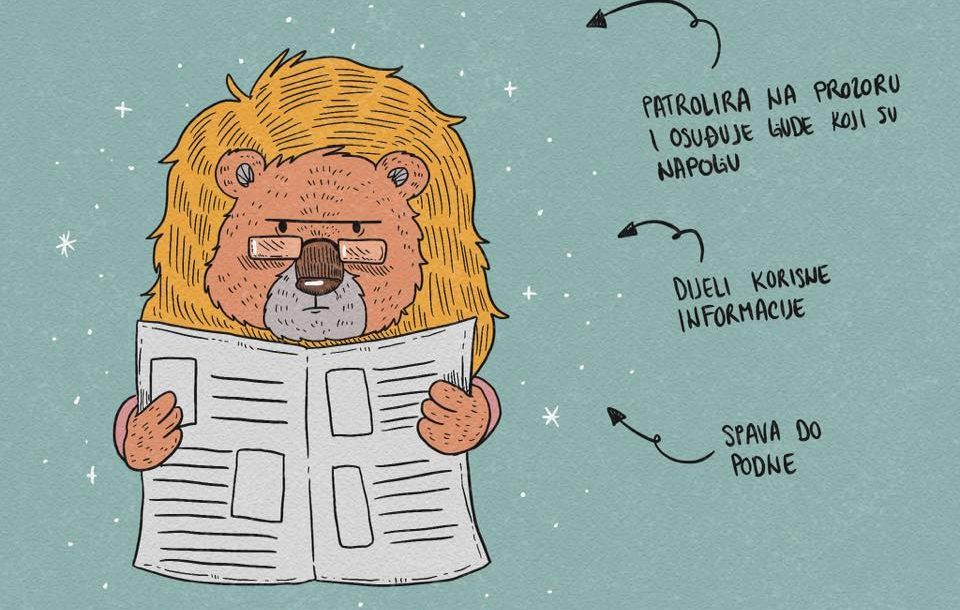 PATROLIRA NA PROZORU
I OSUĐUJE LJUDE KOJI SU
NAPOLJU
DIJELI KORISNE
INFORMACIJE
SPAVA DO
PODNE